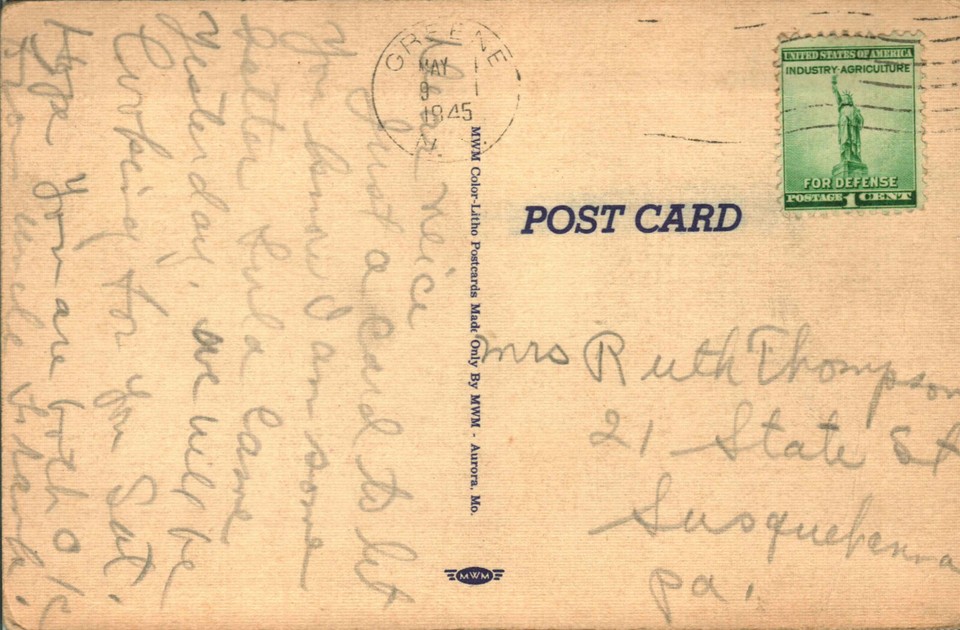 GREENE
MAY
9
1945
N.
UNITED STATES OF AMERICA
INDUSTRY·AGRICULTURE
FOR DEFENSE
POSTAGE 1 CENT
POST CARD
Dear Neice
Just a Card to let
You know I am some
better Came
Yesterday, we will be
for you Sat.
Hope you are both O/K
Your uncle
MWM Color-Litho Postcards Made Only By MWM - Aurora, Mo.
MWM
Mrs Ruth Thompson
21 State St
Susquehanna
Pa.